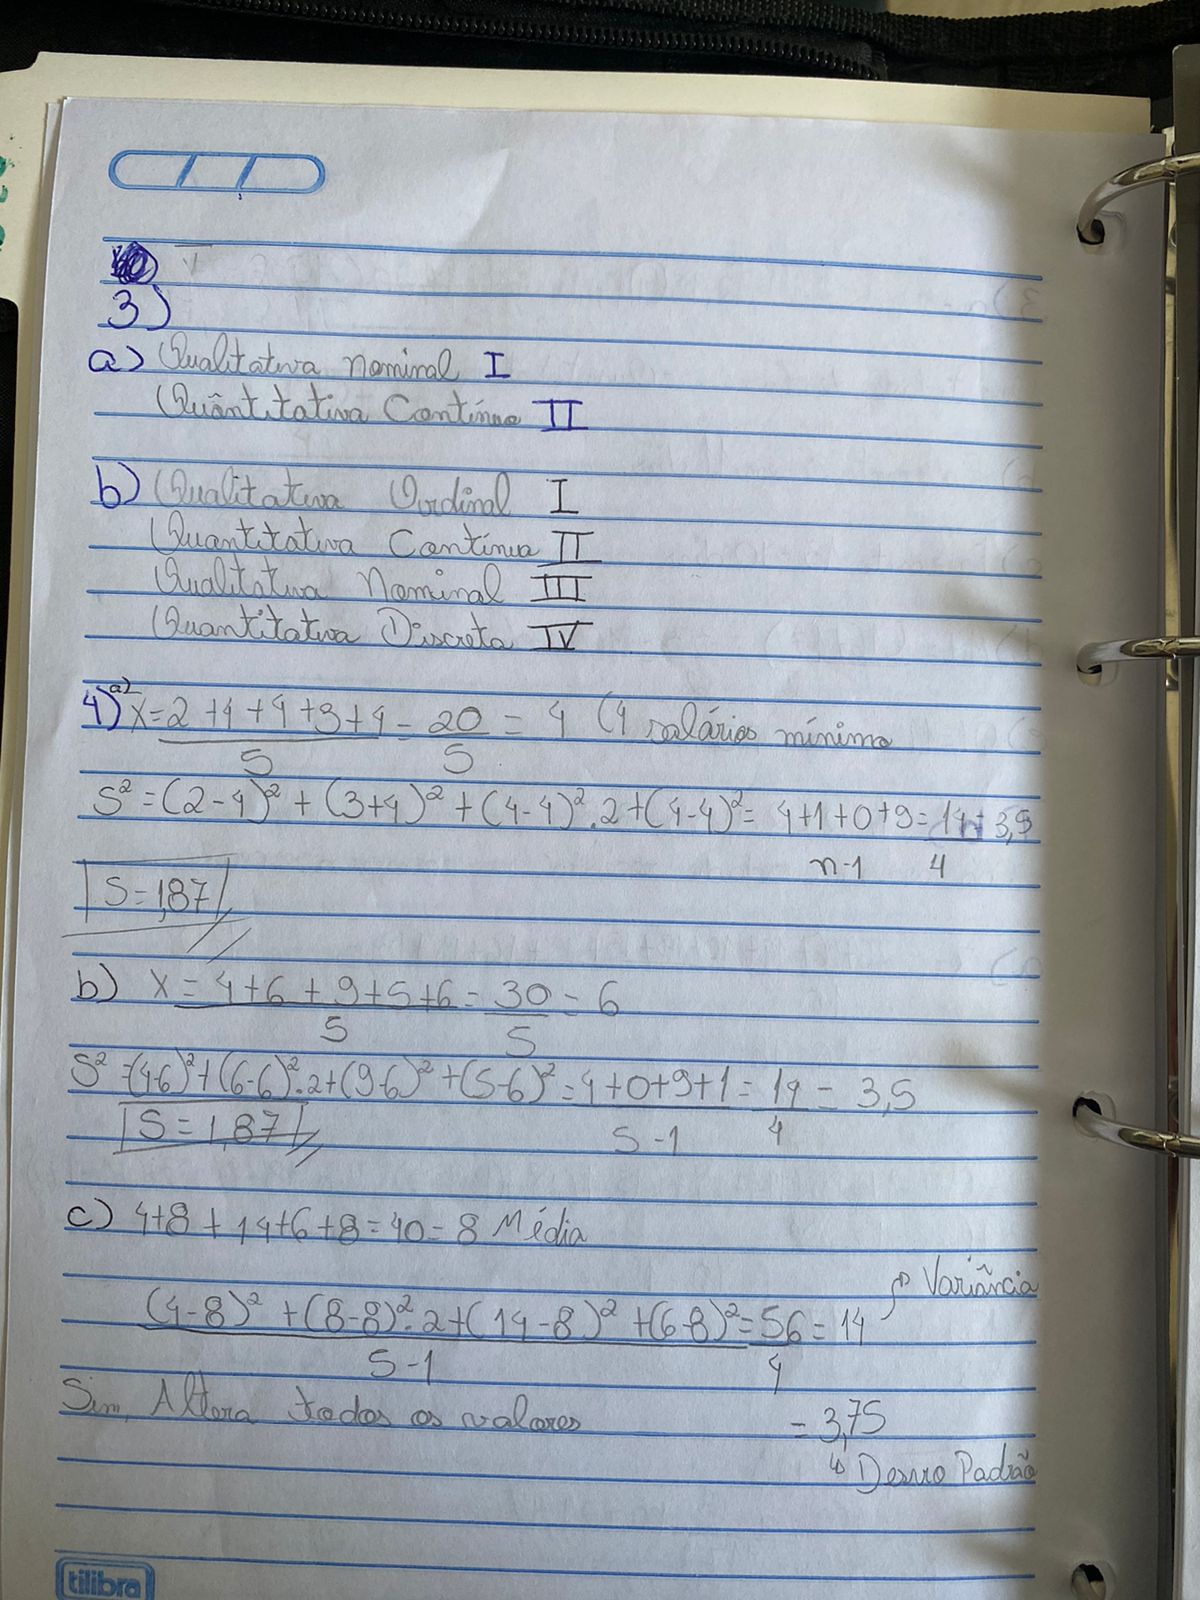 3)
a) Qualitativa nominal I
Quântitativa Contínua II
b) Qualitativa Ordinal I
Quantitativa Contínua II
Qualitativa Nominal III
Quantitativa Discreta IV
4) a) X = 2 + 4 + 4 + 3 + 4 = 20 = 4 (4 salários mínimo
5 5
S² = (2-4)² + (3+4)² + (4-4)².2 + (4-4)² = 4+1+0+9 = 14 = 3,5
n-1 4
S = 1,87
b) X = 4+6+9+5+6 = 30 = 6
5 5
S² = (4-6)² + (6-6)².2 + (9-6)² + (5-6)² = 4+0+9+1 = 14 = 3,5
S = 1,87 5-1 4
c) 4+8+14+6+8 = 40 = 8 Média
Variância
(4-8)² + (8-8)².2 + (14-8)² + (6-8)² = 56 = 14
5-1 4
Sim, Altera todos os valores = 3,75
Desvio Padrão
tilibra